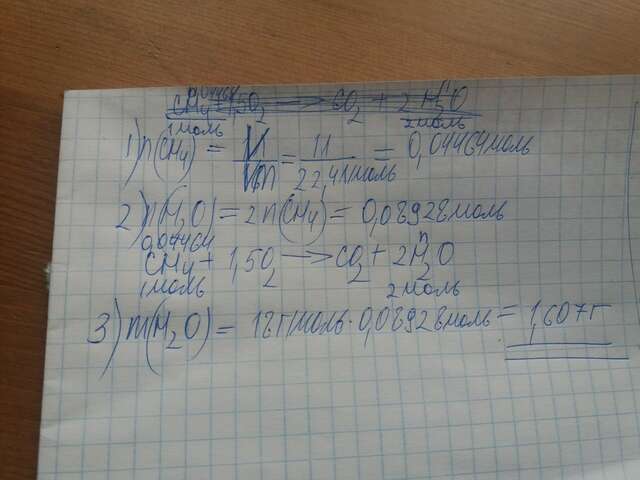 0,04464
CH4 + 1,5O2 → CO2 + 2 H2O
1 моль 2 моль
1) n(CH4) = V/Vm = 1л/22,4л/моль = 0,04464 моль
2) n(H2O) = 2n(CH4) = 0,08928 моль
0,04464 n
CH4 + 1,5O2 → CO2 + 2H2O
1 моль 2 моль
3) m(H2O) = 18г/моль · 0,08928 моль = 1,607 г